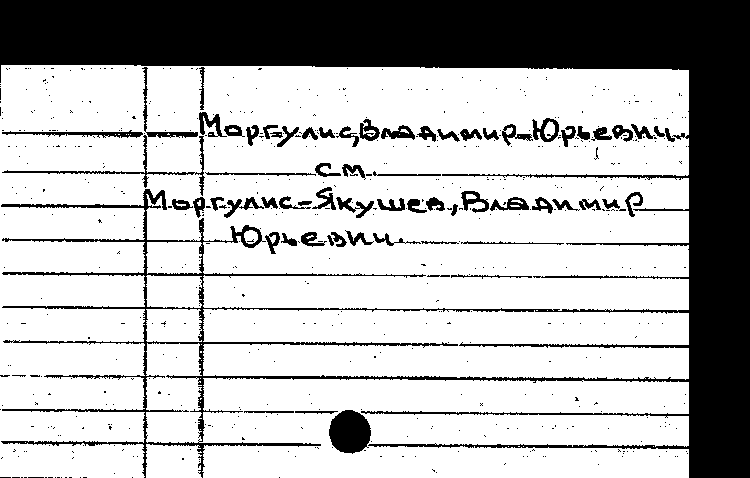 Моргулис, Владимир Юрьевич.
см.
Моргулис-Якушев, Владимир
Юрьевич.